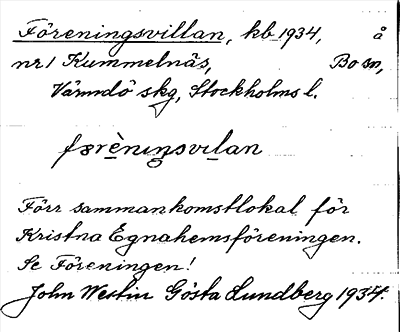 Föreningsvillan, kb 1934, å
nr 1 Kummelnäs, Bo sn,
Värmdö skg, Stockholms l.
færèniŋsvilan
Förr sammankomstlokal för
Kristna Egnahemsföreningen.
Se Föreningen!
John Westin Gösta Lundberg 1934.